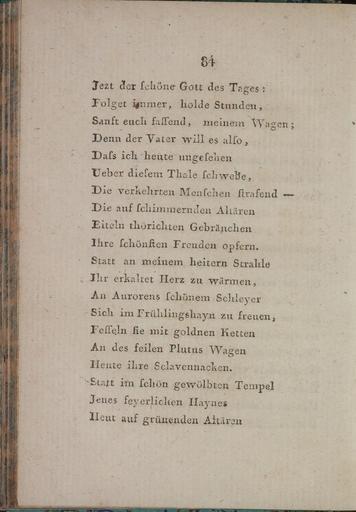 84
Jezt der ſchöne Gott des Tages:
Folget immer, holde Stunden,
Sanft euch faſſend, meinem Wagen;
Denn der Vater will es alſo,
Daſs ich heute ungeſehen
Ueber dieſem Thale ſchwebe,
Die verkehrten Menſchen ſtrafend —
Die auf ſchimmernden Altären
Eiteln thörichten Gebräuchen
Ihre ſchönſten Freuden opfern.
Statt an meinem heitern Strahle
Ihr erkaltet Herz zu wärmen,
An Aurorens ſchönem Schleyer
Sich im Frühlingshayn zu freuen,
Feſſeln ſie mit goldnen Ketten
An des feilen Plutus Wagen
Heute ihre Sclavennacken.
Statt im ſchön gewölbten Tempel
Jenes feyerlichen Haynes
Heut auf grünenden Altären